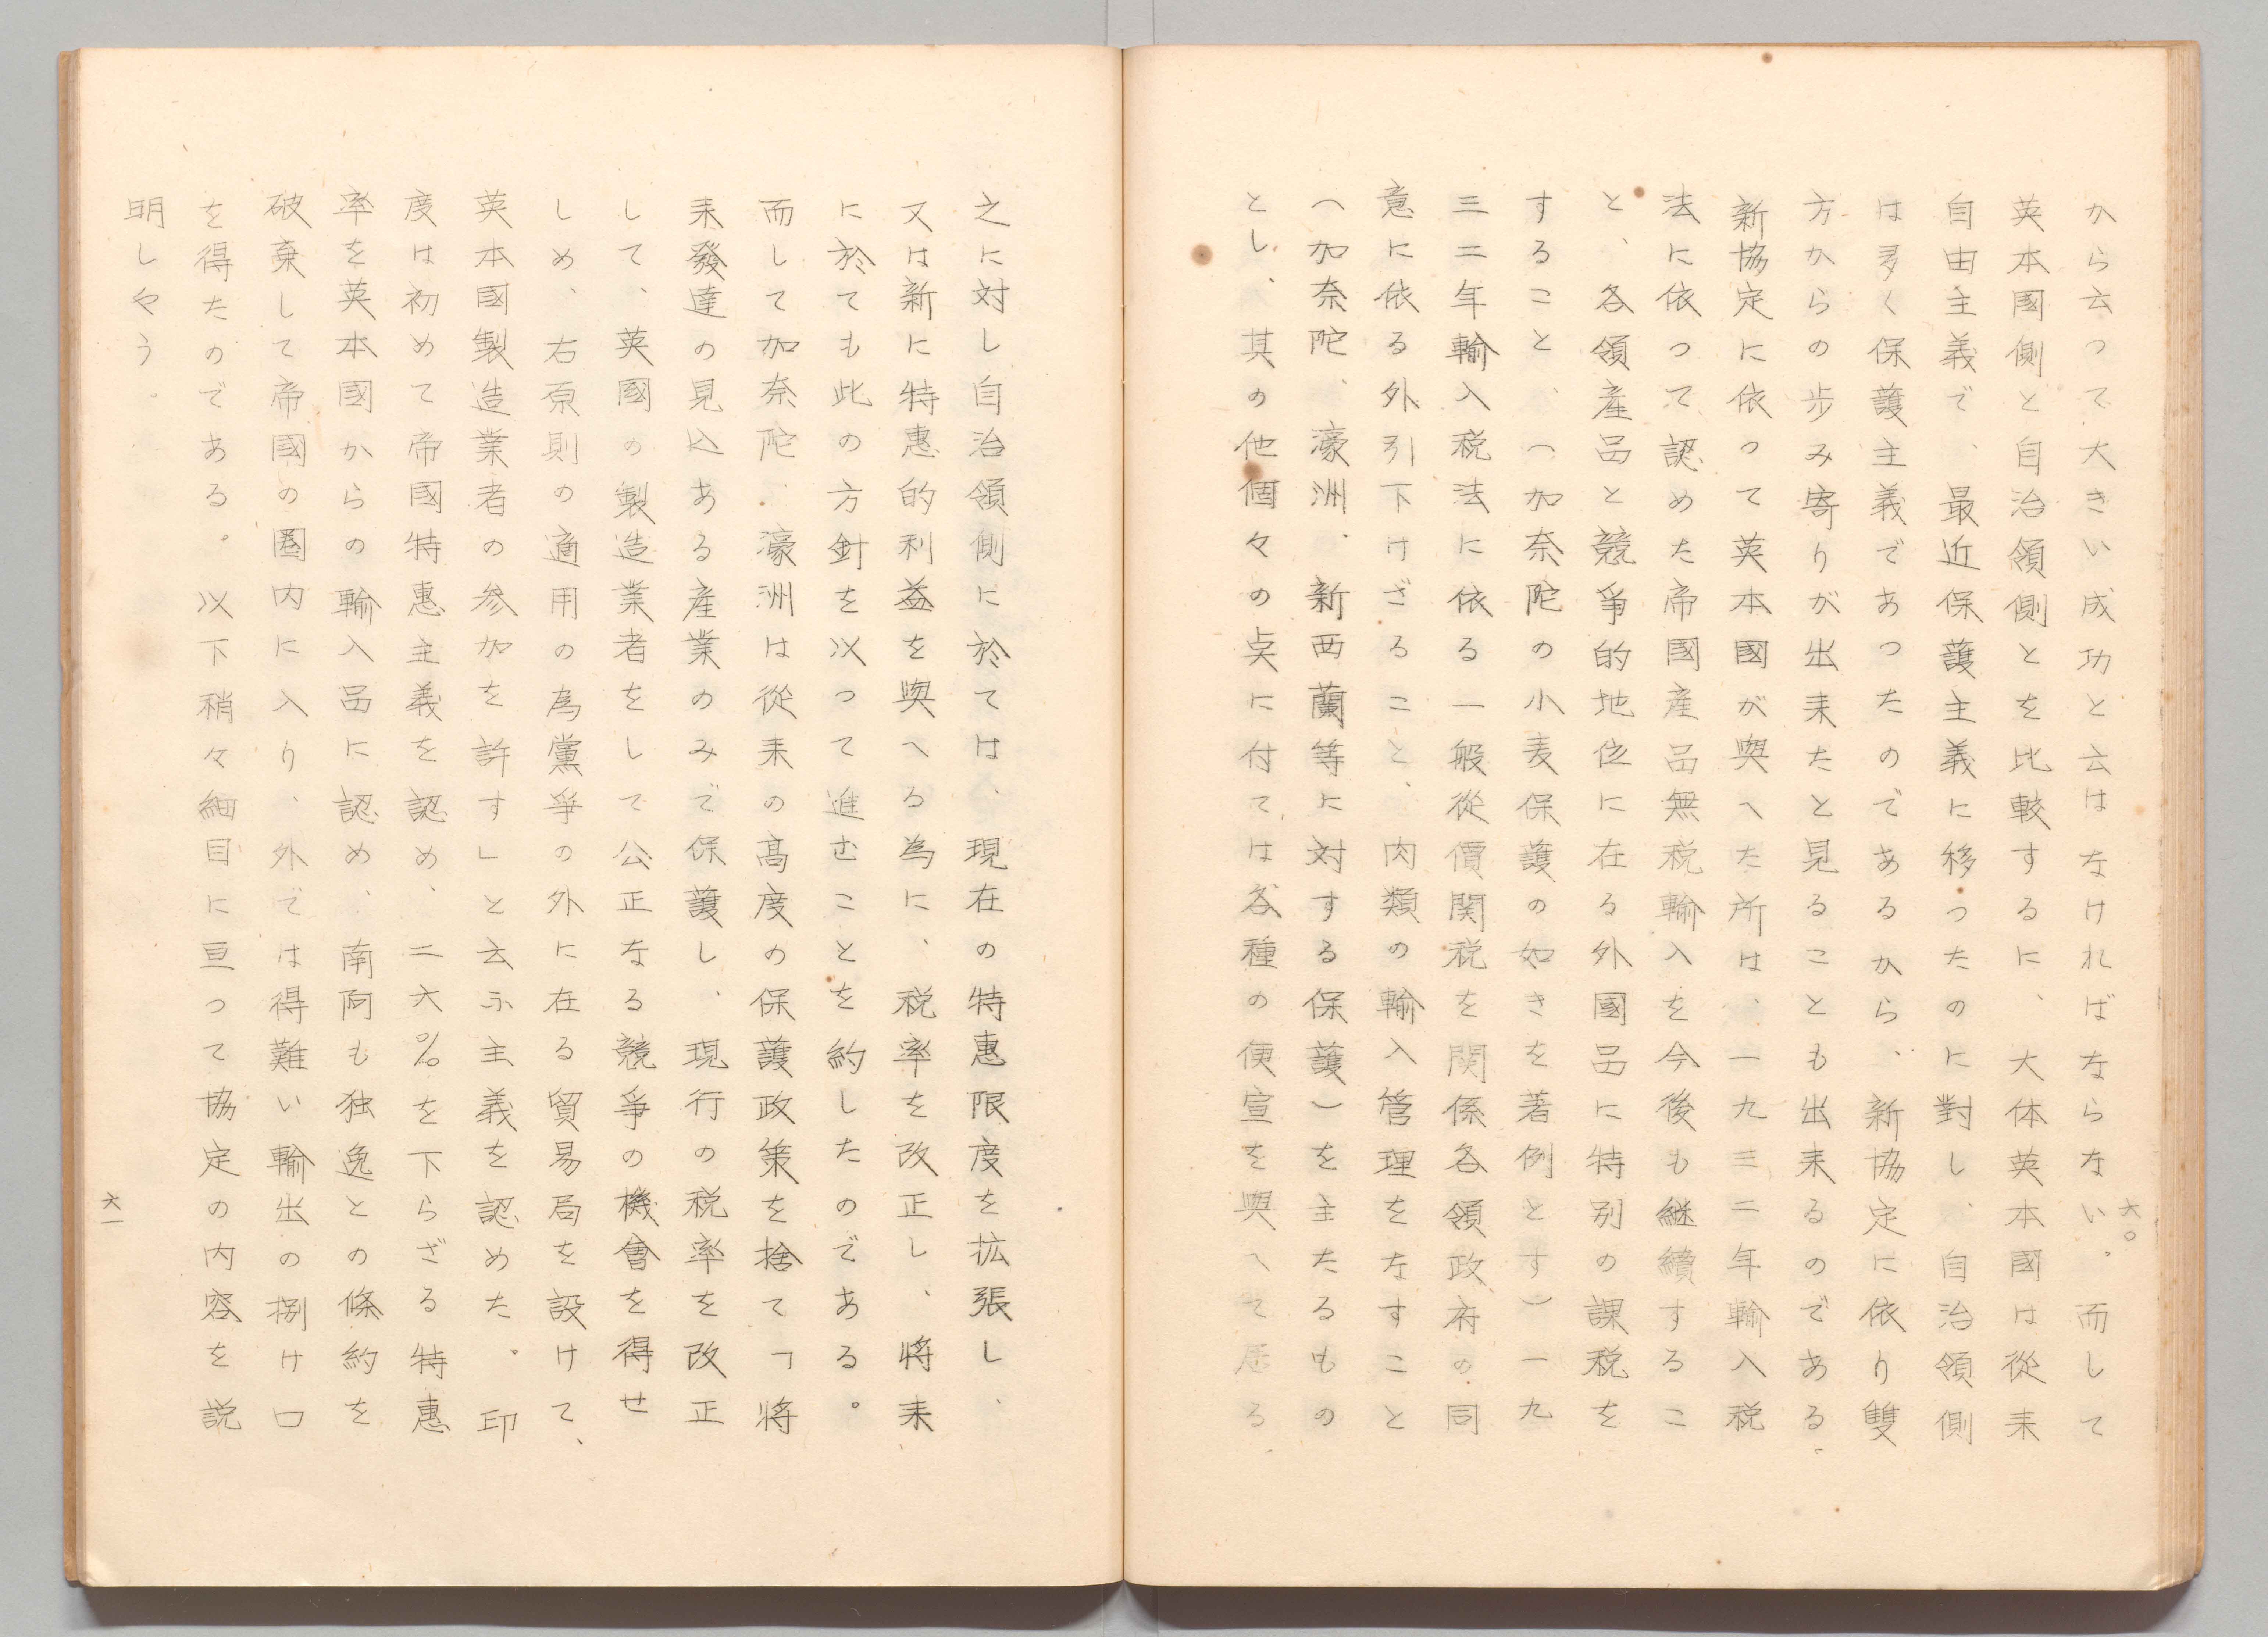 から云つて大きい成功と云はなければならない。而して
英本國側と自治領側とを比較するに、大体英本國は從来
自由主義で、最近保護主義に移つたのに對し、自治領側
は多く保護主義であつたのであるから、新協定に依り雙
方からの歩み寄りが出来たと見ることも出来るのである。
新協定に依つて英本國が與へた所は、一九三二年輸入税
法に依つて認めた帝國産品無税輸入を今後も継續するこ
と、各領産品と競爭的地位に在る外國品に特別の課税を
すること、(加奈陀の小麦保護の如きを著例とす)一九
三二年輸入税法に依る一般從價関税を関係各領政府の同
意に依る外引下けざること、肉類の輸入管理をなすこと
(加奈陀、濠洲、新西蘭等に対する保護)を主たるもの
とし、其の他個々の点に付ては各種の便宜を與へて居る、
六〇
之に対し自治領側に於ては、現在の特惠限度を拡張し、
又は新に特惠的利益を與へる為に、税率を改正し、将来
に於ても此の方針を以つて進むことを約したのである。
而して加奈陀、濠洲は從来の高度の保護政策を捨て「将
来發達の見込ある産業のみで保護し、現行の税率を改正
して、英國の製造業者をして公正なる競爭の機會を得せ
しめ、右原則の適用の為黨爭の外に在る貿易局を設けて、
英本國製造業者の参加を許す」と云ふ主義を認めた。印
度は初めて帝國特惠主義を認め、二六%を下らざる特惠
率を英本國からの輸入品に認め、南阿も独逸との條約を
破棄して帝國の圏内に入り、外では得難い輸出の捌け口
を得たのである。以下稍々細目に亘つて協定の内容を説
明しやう。
六一